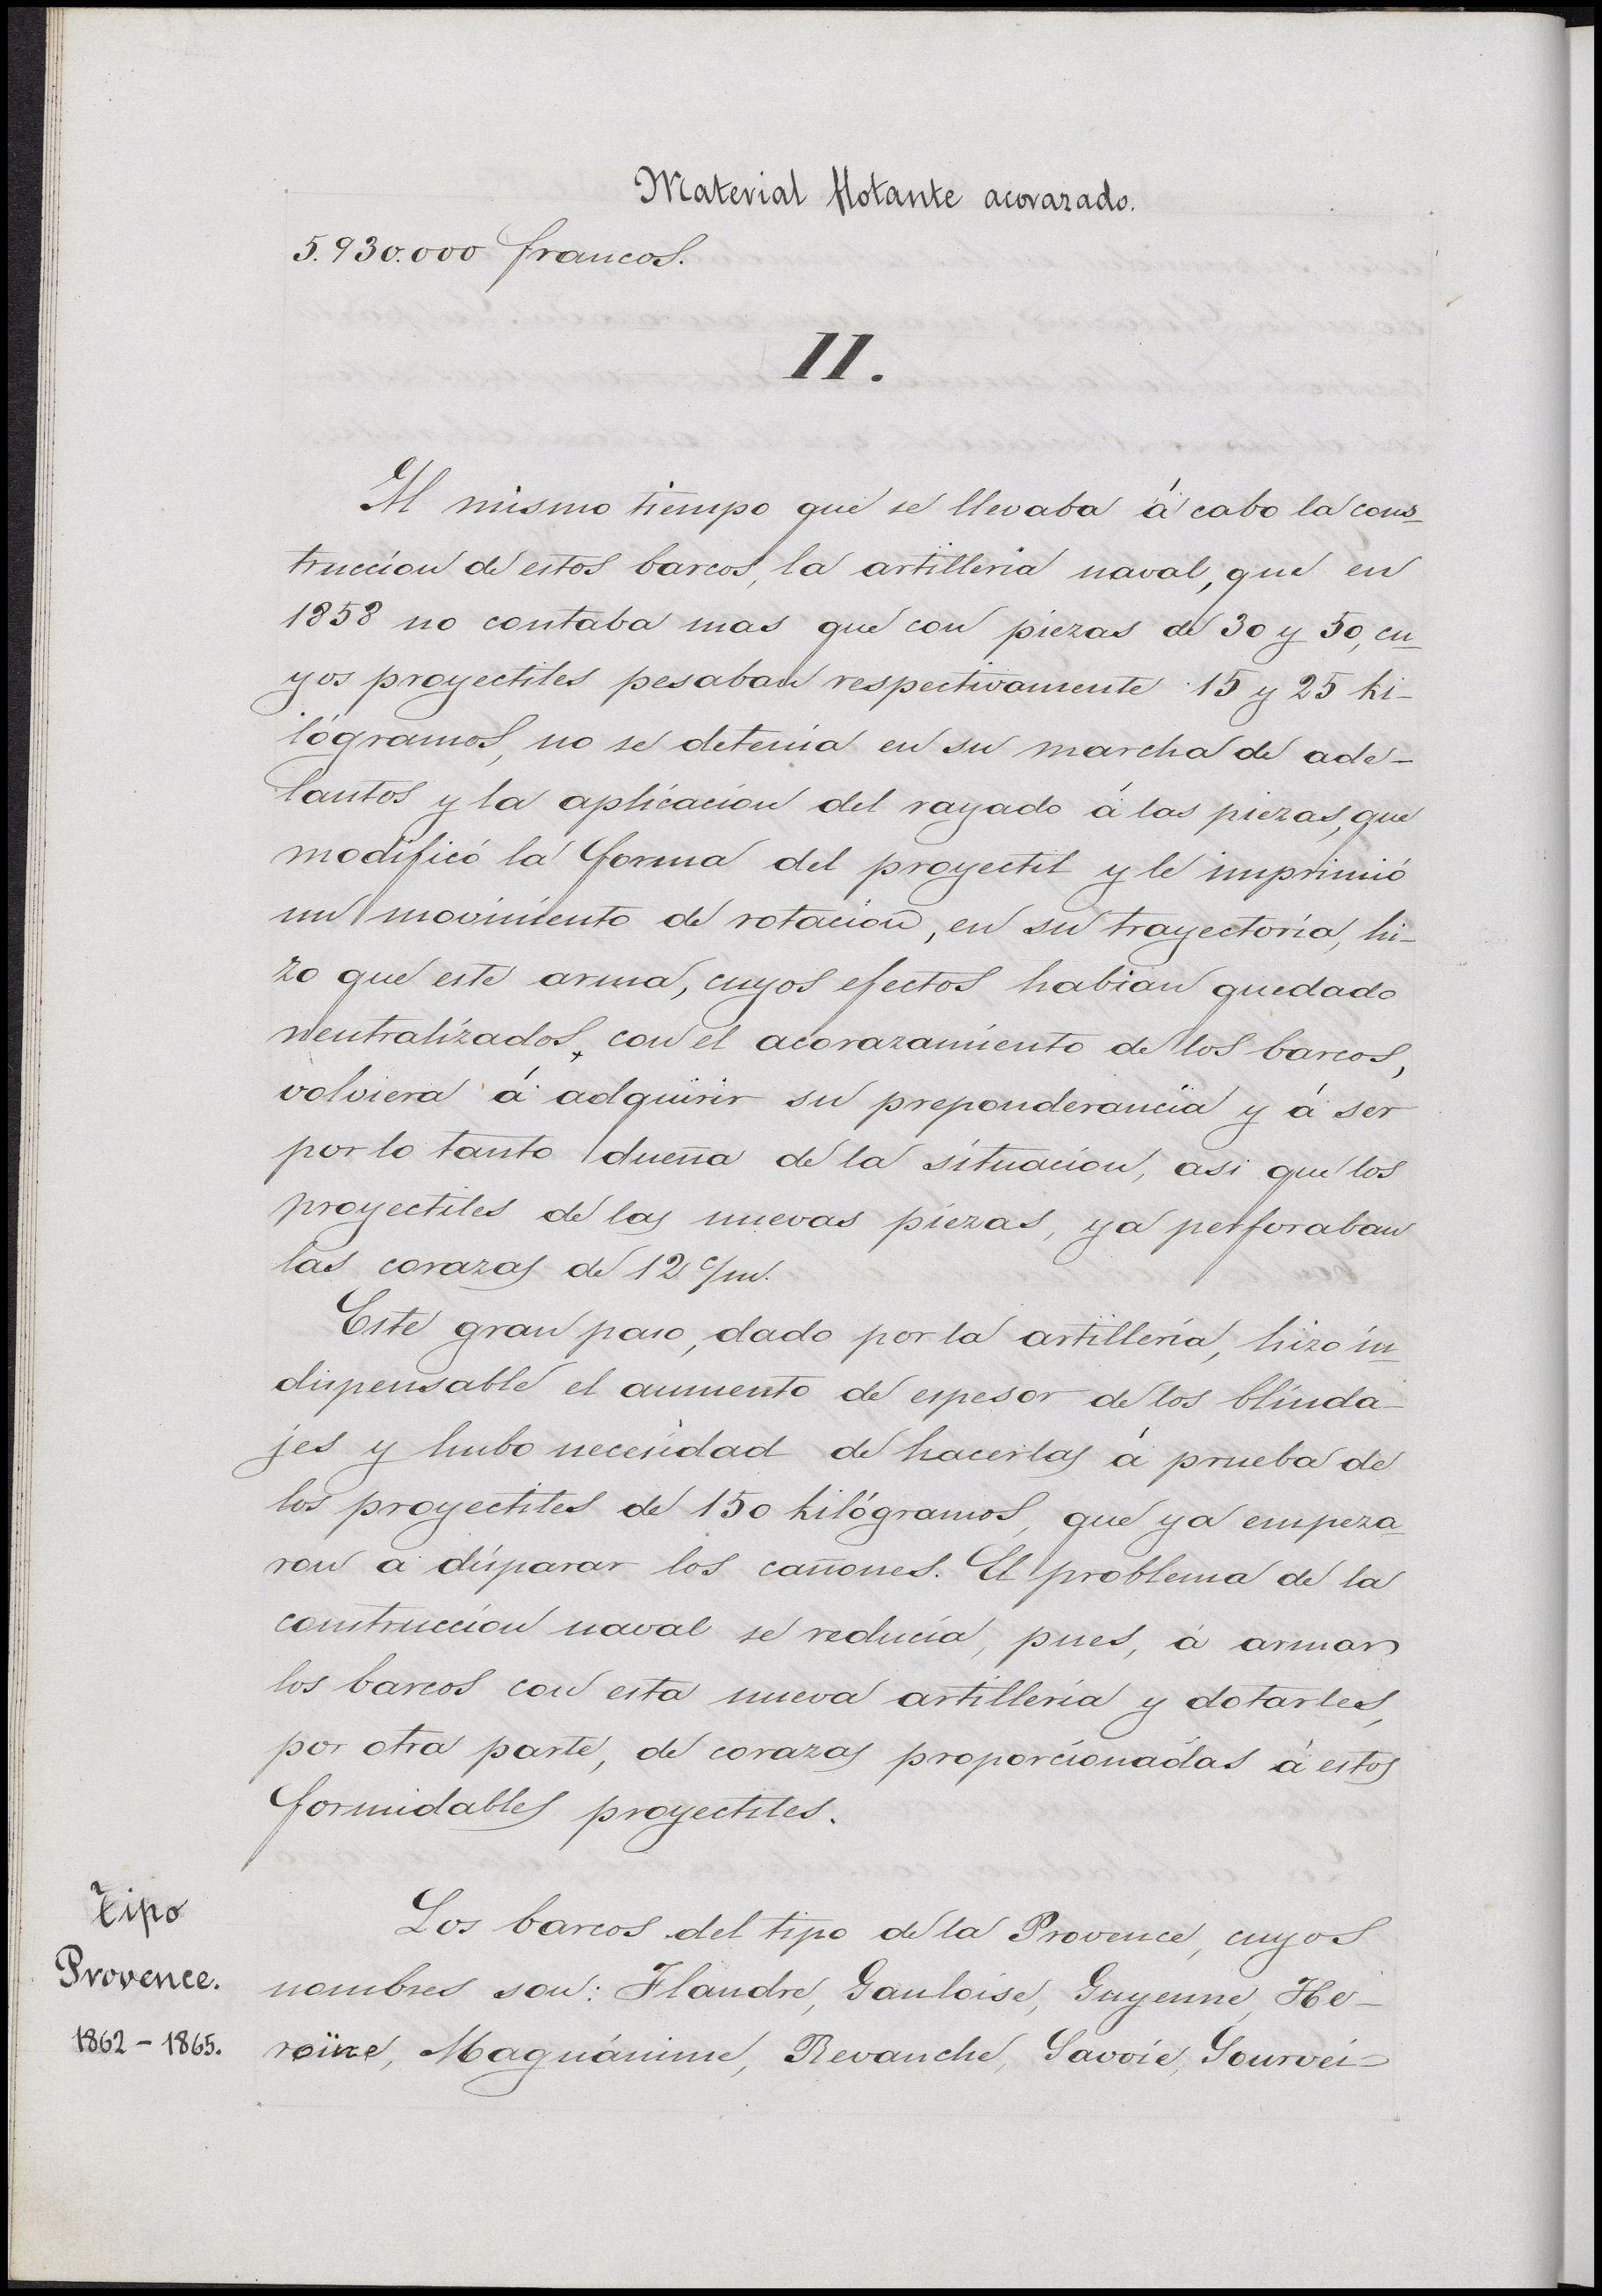 Material flotante acorazado.
5.930.000 francos.
II.
Al mismo tiempo que se llevaba á cabo la cons-
truccion de estos barcos, la artilleria naval, que en
1858 no contaba mas que con piezas de 30 y 50, cu-
yos proyectiles pesaban respectivamente 15 y 25 ki-
lógramos, no se detenia en su marcha de ade-
lantos y la aplicacion del rayado á las piezas, que
modificó la forma del proyectil y le imprimió
un movimiento de rotacion, en su trayectoria, hi-
zo que este arma, cuyos efectos habian quedado
neutralizados, con el acorazamiento de los barcos,
volviera á adquirir su preponderancia y á ser
por lo tanto dueña de la situacion, asi que los
proyectiles de las nuevas piezas, ya perforaban
las corazas de 12 c/m.
Este gran paso, dado por la artillería, hizo in-
dispensable el aumento de espesor de los blinda-
jes y hubo necesidad de hacerlas á prueba de
los proyectiles de 150 kilógramos, que ya empeza-
ron a disparar los cañones. El problema de la
construccion naval se reducia, pues, á armar
los barcos con esta nueva artillería y dotarles,
por otra parte, de corazas proporcionadas á estos
formidables proyectiles.
Tipo
Provence.
1862 - 1865.
Los barcos del tipo de la Provence, cuyos
nombres son: Flandre, Gauloise, Guyenne, He-
roïne, Magnánime, Revanche, Savoie, Sourvei-